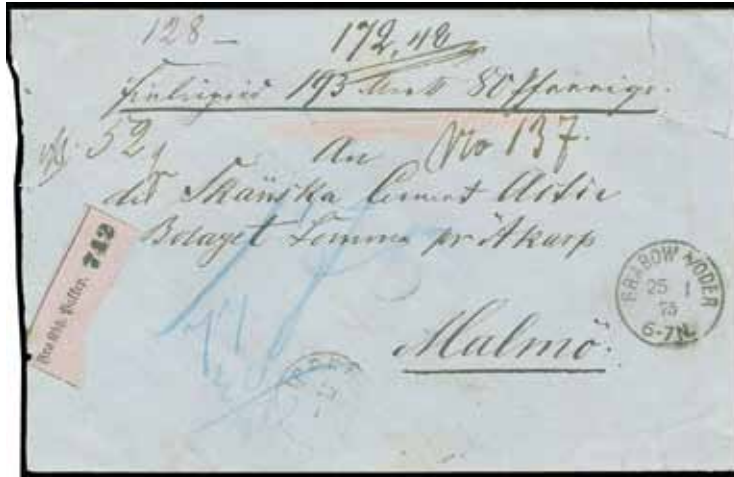 128 —
172,48
193 Mark 80 Pfennige.
52
An No 137.
die Skånska Cement Actie
Bolaget Lomma pr Åkarp
Malmö.
742
GRABOW A/ODER
25 1
75
6-7N.